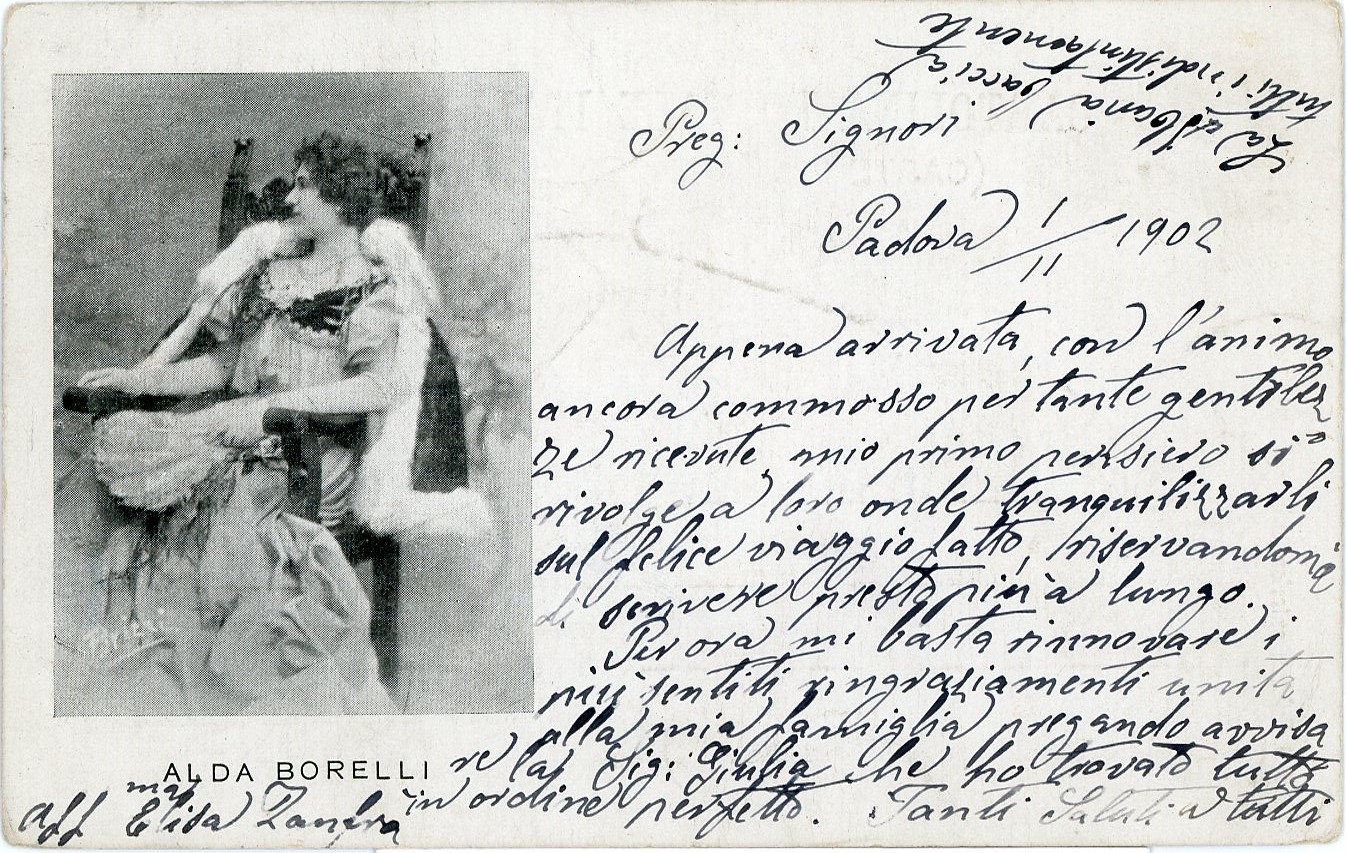 Preg: Signori
Padova 1/11 1902
Appena arrivata, con l'animo
ancora commosso per tante gentilez
ze ricevute, mio primo pensiero si
rivolge a loro onde tranquilizzarli
sul felice viaggio fatto, riservandomi
di scrivere presto più a lungo.
Per ora mi basta rinnovare i
più sentiti ringraziamenti unita
alla mia famiglia pregando avvisa
re la Sig: Giulia che ho trovato tutto
in ordine perfetto. Tanti Saluti a tutti
aff ma
Elisa
La bacia
tutti indistintamente
ALDA BORELLI